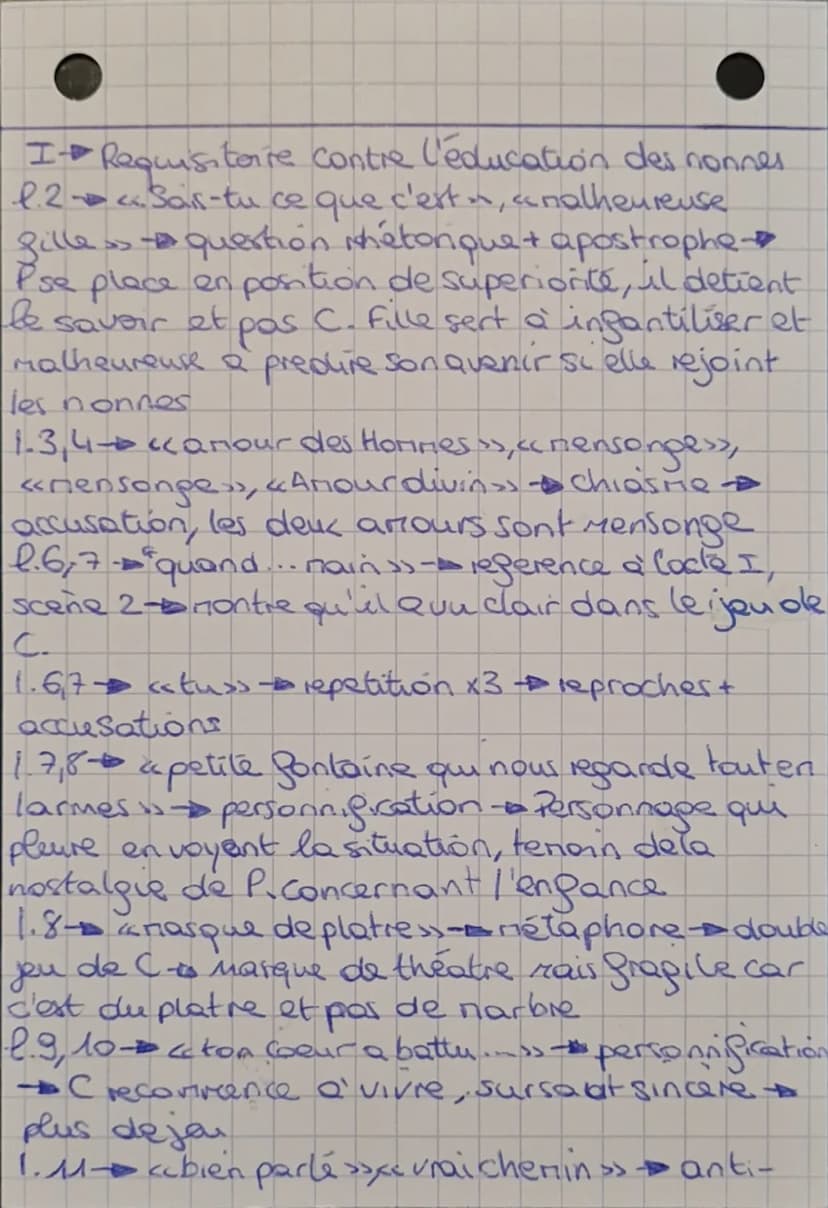 I → Requisitoire contre l'éducation des nonnes
l.2 → «Sais-tu ce que c'est», «malheureuse
fille» → question rhétorique + apostrophe →
P se place en position de superiorité, il detient
le savoir et pas C. Fille sert à infantiliser et
malheureuse à predire son avenir si elle rejoint
les nonnes
l.3,4 → «amour des Hommes», «mensonge»,
«mensonge», «Amour divin» → Chiasme →
accusation, les deux amours sont mensonge
l.6,7 → "quand... main» → reference à l'acte I,
scène 2 → montre qu'il a vu clair dans le jeu de
C.
l.6,7 → «tu» → repetition x3 → reproches +
accusations
l.7,8 → «petite fontaine qui nous regarde tout en
larmes» → personnification → Personnage qui
pleure en voyant la situation, temoin de la
nostalgie de P. concernant l'enfance
l.8 → «masque de platre» → métaphore → double
jeu de C → Masque de théatre mais fragile car
c'est du platre et pas de marbre
l.9,10 → «ton coeur a battu...» → personnification
→ C recommence à vivre, sursaut sincère →
plus de jeu
l.11 → «bien parlé»x«vrai chemin» → anti-